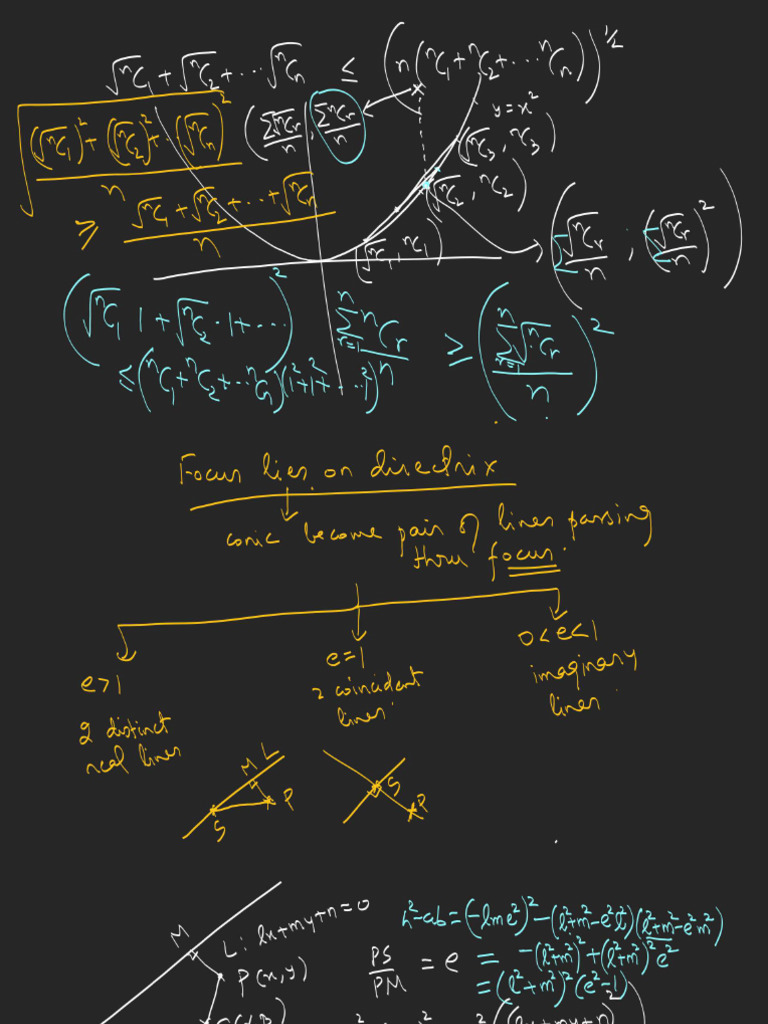 √ⁿC₁ + √ⁿC₂ + ... √ⁿCₙ ≤ (n(ⁿC₁ + ⁿC₂ + ... ⁿCₙ))^1/2
√(((√ⁿC₁)² + (√ⁿC₂)² + .. (√ⁿCₙ)²)/n)
≥ (√ⁿC₁ + √ⁿC₂ + .. + √ⁿCₙ)/n
(Σ√ⁿCᵣ/n ; ΣⁿCᵣ/n)
y = x²
(√ⁿC₃, ⁿC₃)
(√ⁿC₂, ⁿC₂)
(√ⁿC₁, ⁿC₁)
(Σ√ⁿCᵣ/n ; (Σ√ⁿCᵣ/n)²)
(√ⁿC₁ 1 + √ⁿC₂ · 1 + ...)²
≤ (ⁿC₁ + ⁿC₂ + ... ⁿCₙ)(1² + 1² + ... 1²)
Σ_{r=1}^{n} ⁿCᵣ/n ≥ (Σ_{r=1}^{n} √ⁿCᵣ/n)²
Focus lies on directrix
conic become pair of lines passing
thru focus.
e>1
2 distinct
real lines
e=1
2 coincident
lines
0<e<1
imaginary
lines
M L
P
S
S
P
M
L: lx+my+n=0
P(x,y)
PS/PM = e
h²-ab = (-lme²)² - (l²+m²-e²l²)(l²+m²-e²m²)
= -(l²+m²)² + (l²+m²)²e²
= (l²+m²)²(e²-1)